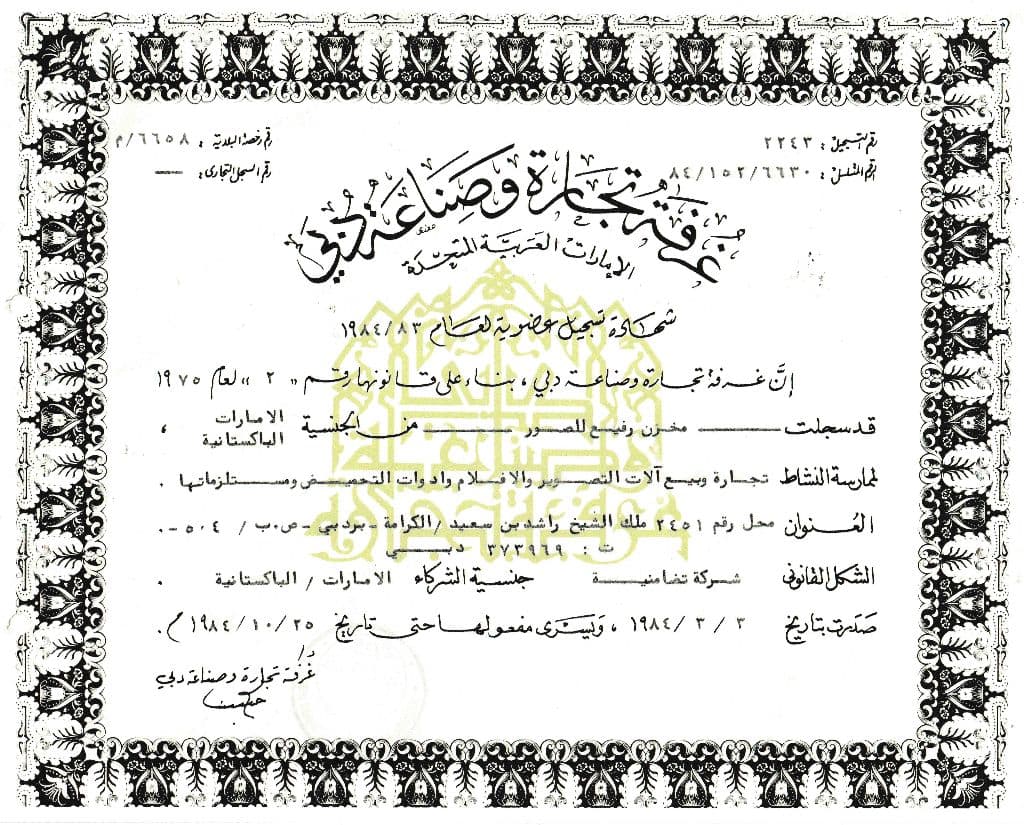 رقم التسجيل : ٢٢٤٣
رقم رخصة البلدية : ٦٦٥٨/م
الرقم المتسلسل : ٨٤/١٥٢/٦٦٣٠
رقم السجل التجاري : —
غرفة تجارة وصناعة دبي
الإمارات العربية المتحدة
شهادة تسجيل عضوية لعام ١٩٨٤/٨٣
إن غرفة تجارة وصناعة دبي ، بناء على قانونها رقم « ٢ » لعام ١٩٧٥
قد سجلت — مخزن رفيع للصور — من الجنسية الامارات الباكستانية ،
لممارسة النشاط تجارة وبيع آلات التصوير والافلام وادوات التحميض ومستلزماتها .
العنوان محل رقم ٢٤٥١ ملك الشيخ راشد بن سعيد / الكرامة - بردبي - ص.ب / ٥٠٤ -.
ت : ٣٧٣٩٦٩ دبي
الشكل القانوني شركة تضامنية جنسية الشركاء الامارات / الباكستانية .
صدرت بتاريخ ٣ / ٣ / ١٩٨٤ ، ويسري مفعولها حتى تاريخ ٢٥ / ١٠ / ١٩٨٤ م .
د/
غرفة تجارة وصناعة دبي